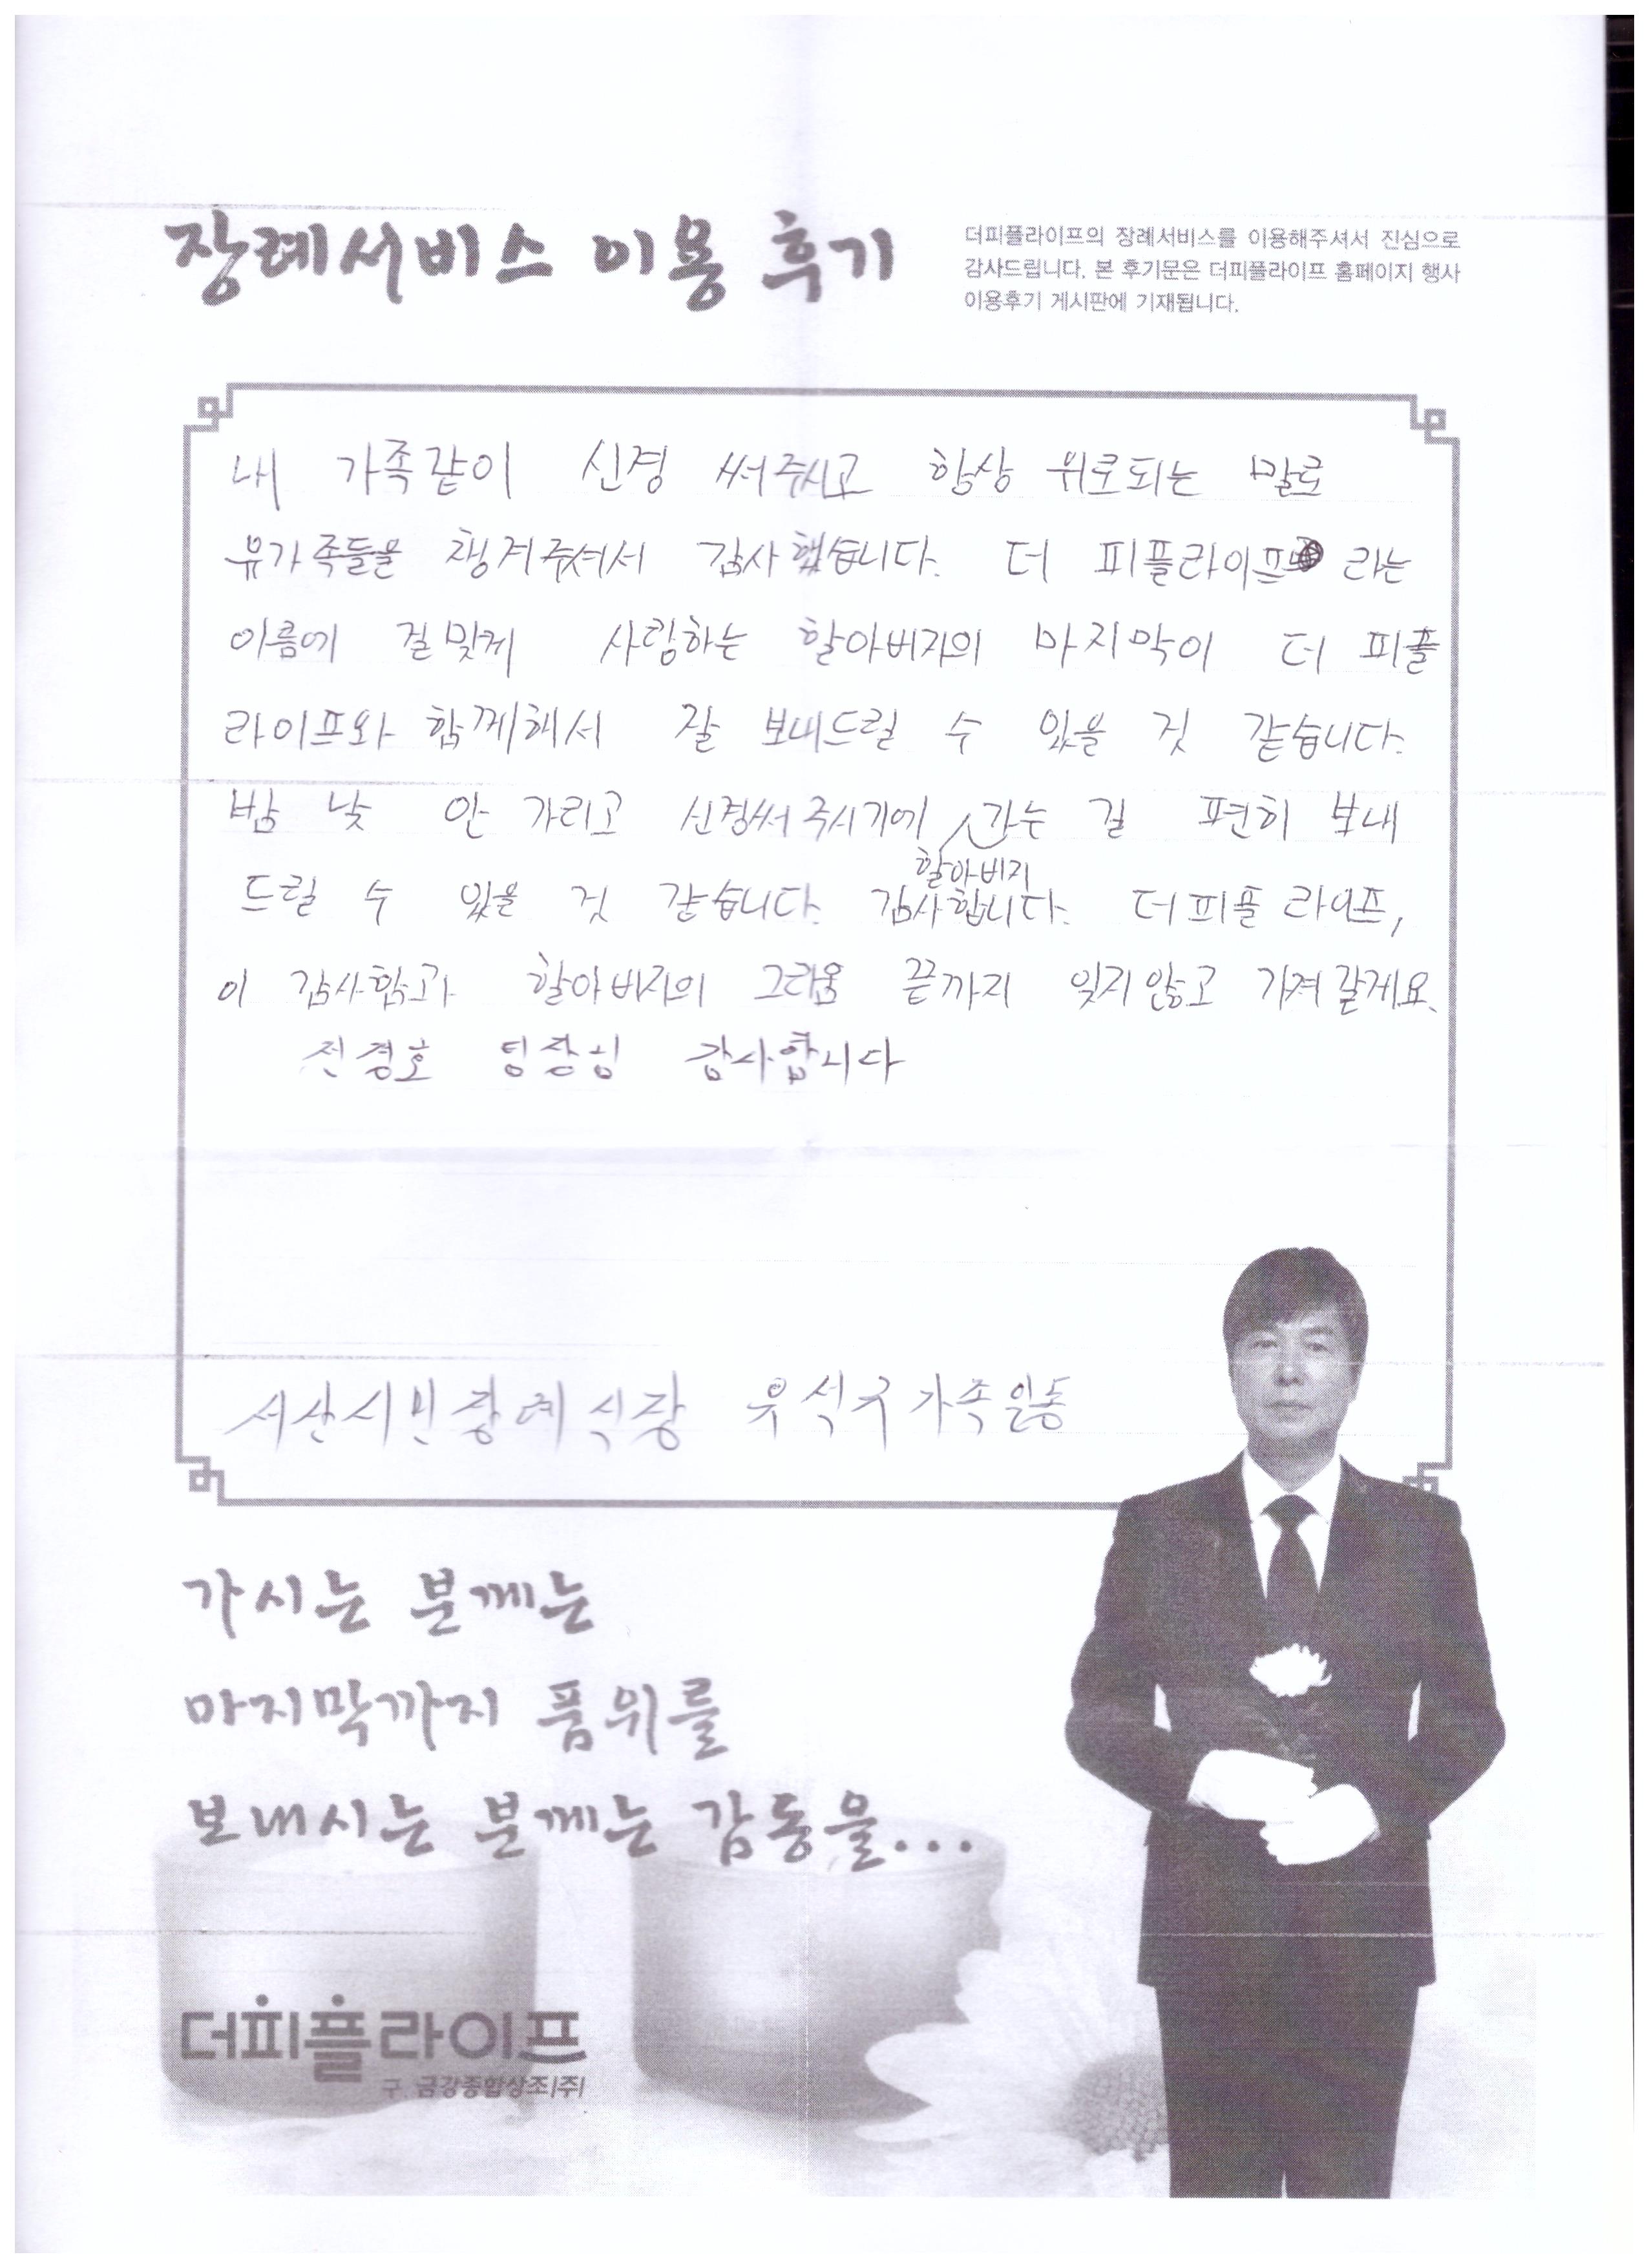 장례서비스 이용 후기
더피플라이프의 장례서비스를 이용해주셔서 진심으로
감사드립니다. 본 후기문은 더피플라이프 홈페이지 행사
이용후기 게시판에 기재됩니다.
내 가족같이 신경 써주시고 항상 위로되는 말로
유가족들을 챙겨주셔서 감사했습니다. 더 피플라이프 라는
이름에 걸맞게 사랑하는 할아버지의 마지막이 더 피플
라이프와 함께해서 잘 보내드릴 수 있을 것 같습니다.
밤 낮 안 가리고 신경써주시기에 가는 길 편히 보내
할아버지
드릴 수 있을 것 같습니다. 감사합니다. 더피플 라이프,
이 감사함과 할아버지의 그리움 끝까지 잊지않고 가져갈게요.
전경호 팀장님 감사합니다
서산시민장례식장 유석구가족일동
가시는 분께는
마지막까지 품위를
보내시는 분께는 감동을...
더피플라이프
구. 금강종합상조(주)